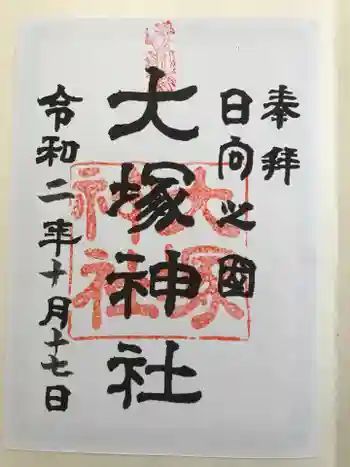 奉拝
日向之國
大塚神社
大塚神社
令和二年十月十七日